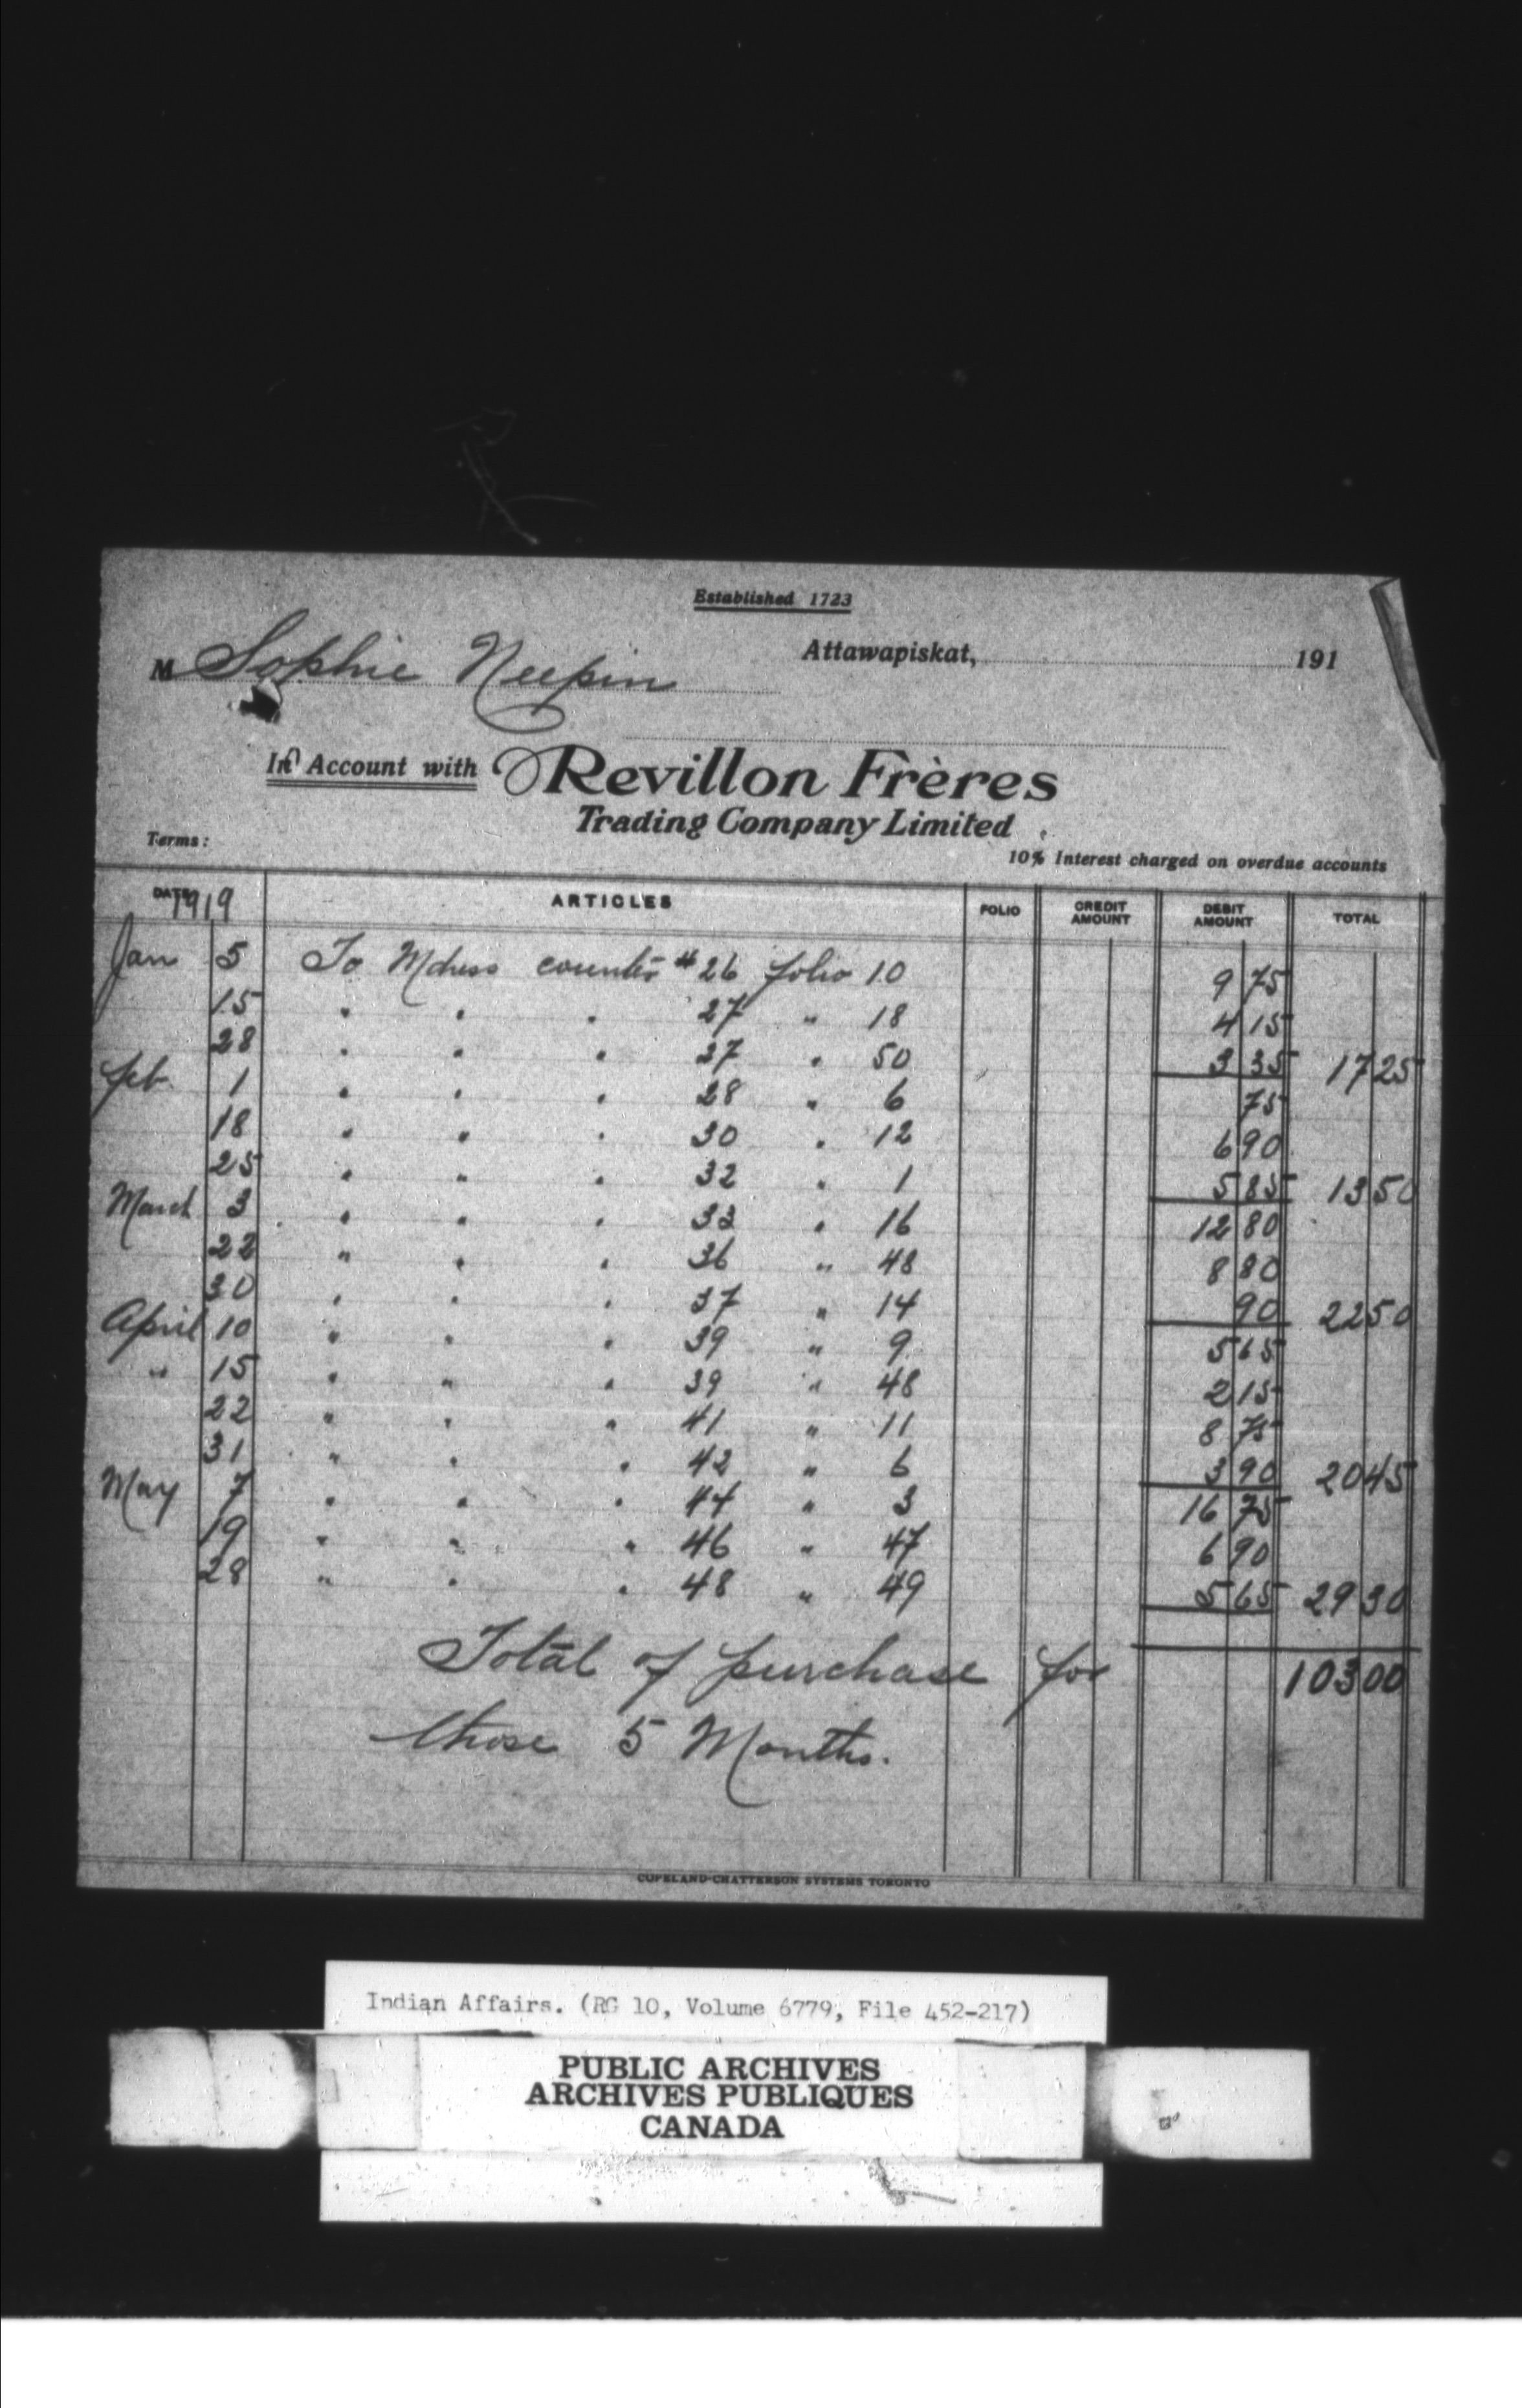 Established 1723
M Sophie Neepin Attawapiskat, 191
In Account with Revillon Frères
Trading Company Limited
Terms:
10% Interest charged on overdue accounts
DATE 1919 ARTICLES FOLIO CREDIT AMOUNT DEBIT AMOUNT TOTAL
Jan 5 To Mdress counter #26 folio 10 9 75
15 " " " 27 " 18 4 15
28 " " " 27 " 50 3 35 17 25
feb. 1 " " " 28 " 6 75
18 " " " 30 " 12 6 90
25 " " " 32 " 1 5 85 13 50
March 3 " " " 33 " 16 12 80
22 " " " 36 " 48 8 80
30 " " " 37 " 14 90 22 50
April 10 " " " 39 " 9 5 65
" 15 " " " 39 " 48 2 15
22 " " " 41 " 11 8 75
31 " " " 42 " 6 3 90 20 45
May 7 " " " 44 " 3 16 75
19 " " " 46 " 47 6 90
28 " " " 48 " 49 5 65 29 30
Total of purchase for 103 00
those 5 Months.
COPELAND-CHATTERSON SYSTEMS TORONTO
Indian Affairs. (RG 10, Volume 6779, File 452-217)
PUBLIC ARCHIVES
ARCHIVES PUBLIQUES
CANADA